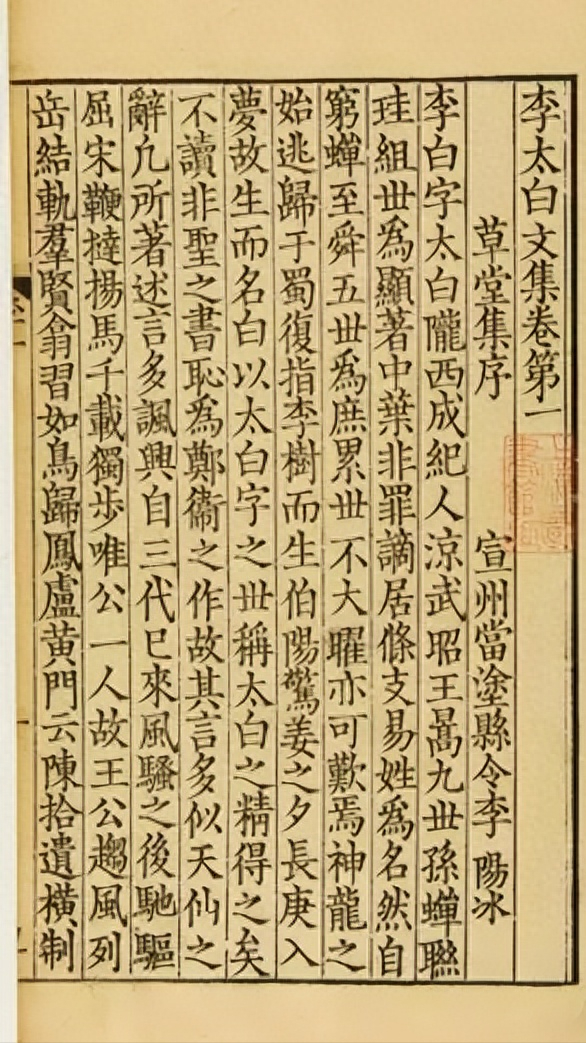 李太白文集卷第一
草堂集序 宣州當塗縣令李陽冰
李白字太白隴西成紀人涼武昭王暠九丗孫蟬聮
珪組丗爲顯著中葉非罪謫居條支易姓爲名然自
窮蟬至舜五丗爲庶累丗不大曜亦可歎焉神龍之
始逃歸于蜀復指李樹而生伯陽驚姜之夕長庚入
夢故生而名白以太白字之丗稱太白之精得之矣
不讀非聖之書恥爲鄭衞之作故其言多似天仙之
辭凢所著述言多諷興自三代巳來風騷之後馳驅
屈宋鞭撻楊馬千載獨步唯公一人故王公趨風列
岳結軌羣賢翕習如鳥歸鳳盧黃門云陳拾遺橫制